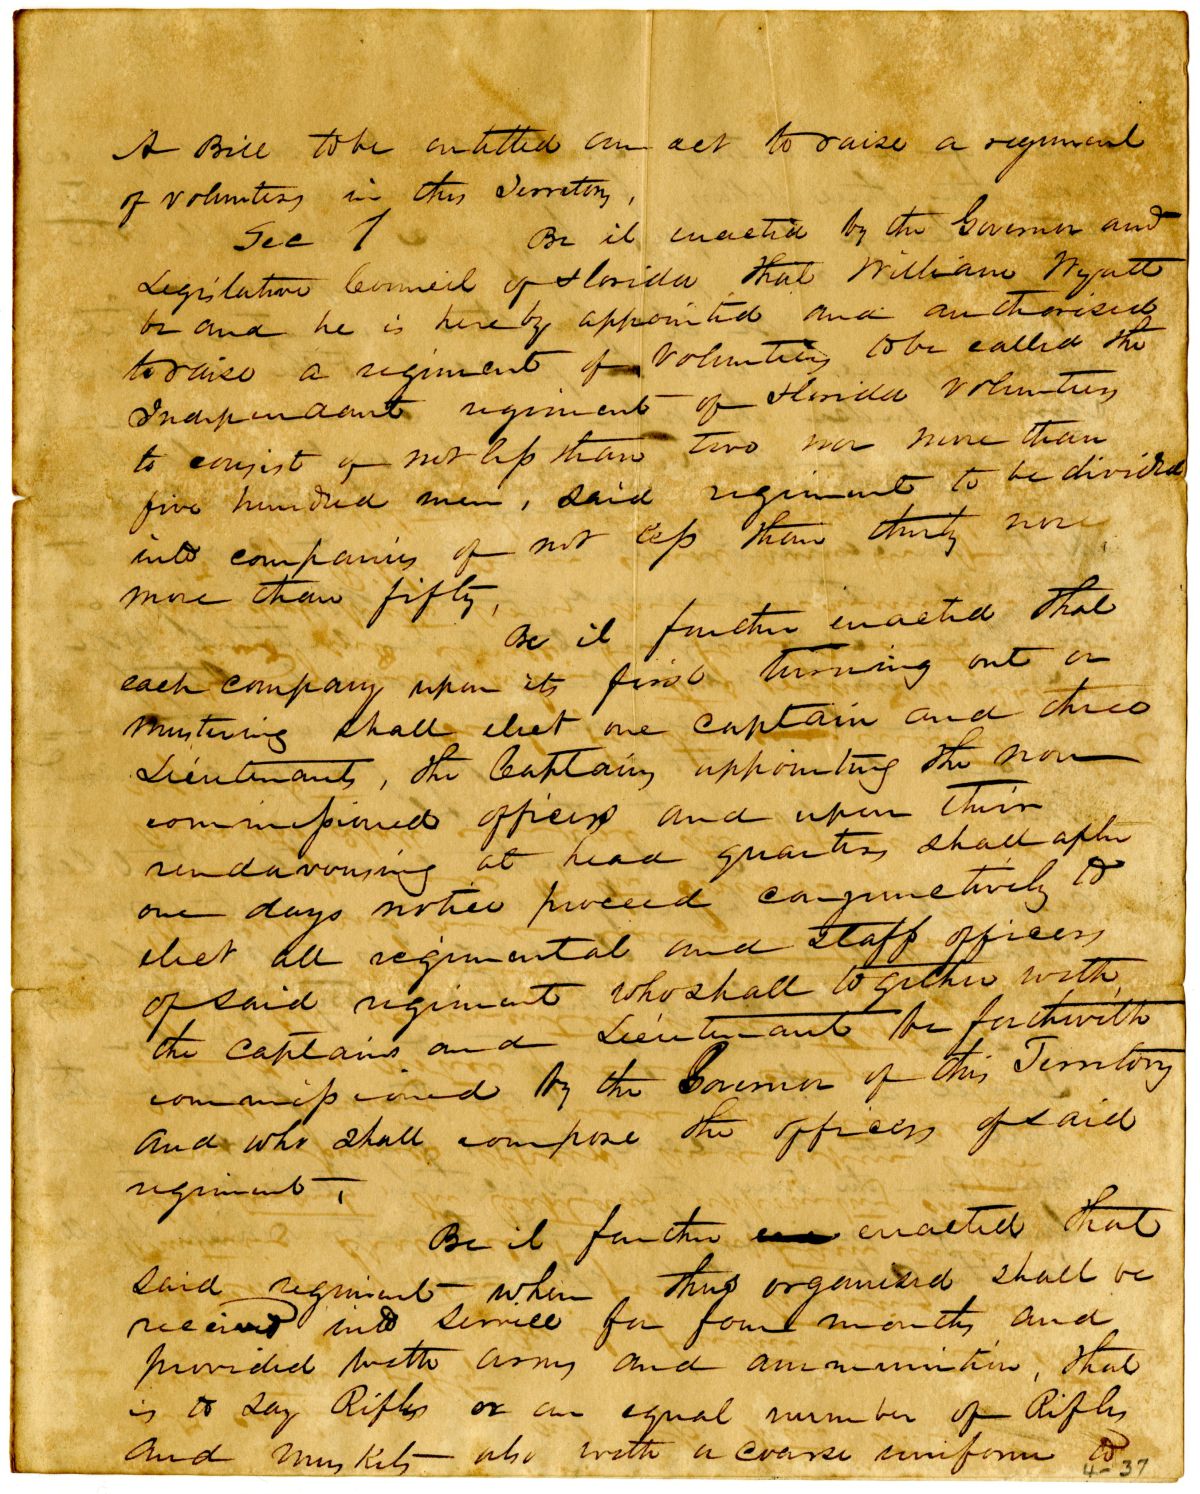 A Bill to be entitled an act to raise a regiment
of volunteers in this Territory,
Sec 1 Be it enacted by the Governor and
Legislative Council of Florida that William Wyatt
be and he is hereby appointed and authorised
to raise a regiment of Volunteers to be called the
Independant regiment of Florida Volunteers
to consist of not less than two nor more than
five hundred men, said regiment to be divided
into companies of not less than thirty nor
more than fifty,
Be it further enacted that
each company upon its first turning out or
mustering shall elect one captain and three
Lieutenants, the Captains appointing the non
commissioned officers and upon their
rendavousing at head quarters shall after
one days notice proceed conjunctively to
elect all regimental and staff officers
of said regiment who shall together with
the captains and Lieutenant be forthwith
commissioned by the Governor of this Territory
and who shall compose the officers of said
regiment,
Be it further enacted that
said regiment when thus organised shall be
received into service for four months and
provided with arms and ammunition, that
is to say Rifles or an equal number of Rifles
and muskets also with a coarse uniform to
4-37